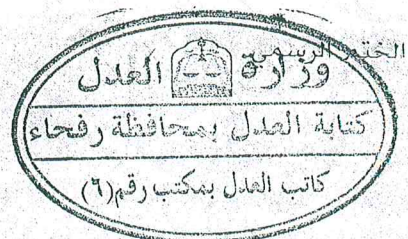 الختم الرسمي
وزارة العدل
كتابة العدل بمحافظة رفحاء
كاتب العدل بمكتب رقم (٦)